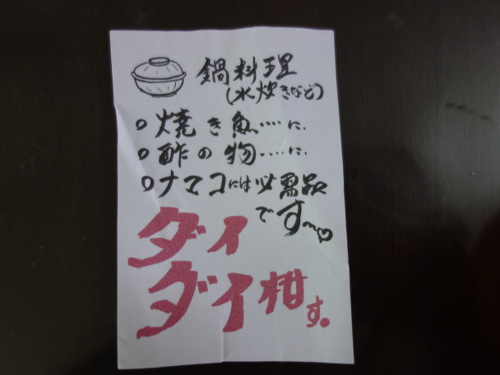 鍋料理
(水炊きなど)
○焼き魚‥‥に.
○酢の物‥‥に.
○ナマコには必需品
です〜♡
ダイ
ダイ柑す。